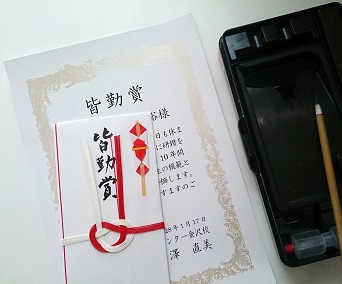 皆勤賞
様
日も休ま
に研鑽を
10年間
の模範と
価します。
すますのご
年1月17日
ンター金沢校
澤 直美
皆勤賞